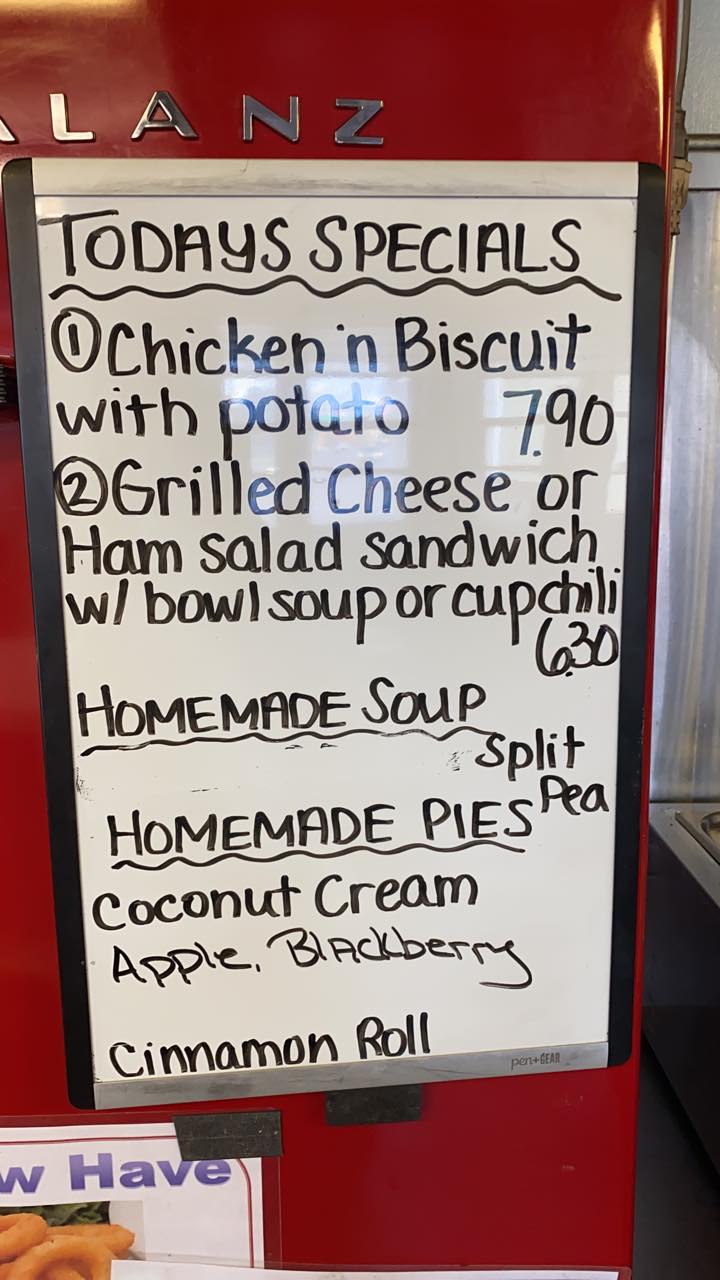 ALANZ
TODAYS SPECIALS
① Chicken 'n Biscuit
with potato 7.90
② Grilled Cheese or
Ham salad sandwich
w/ bowl soup or cup chili
6.30
HOMEMADE SOUP
Split
Pea
HOMEMADE PIES
Coconut Cream
Apple, Blackberry
Cinnamon Roll
pen+GEAR
w Have